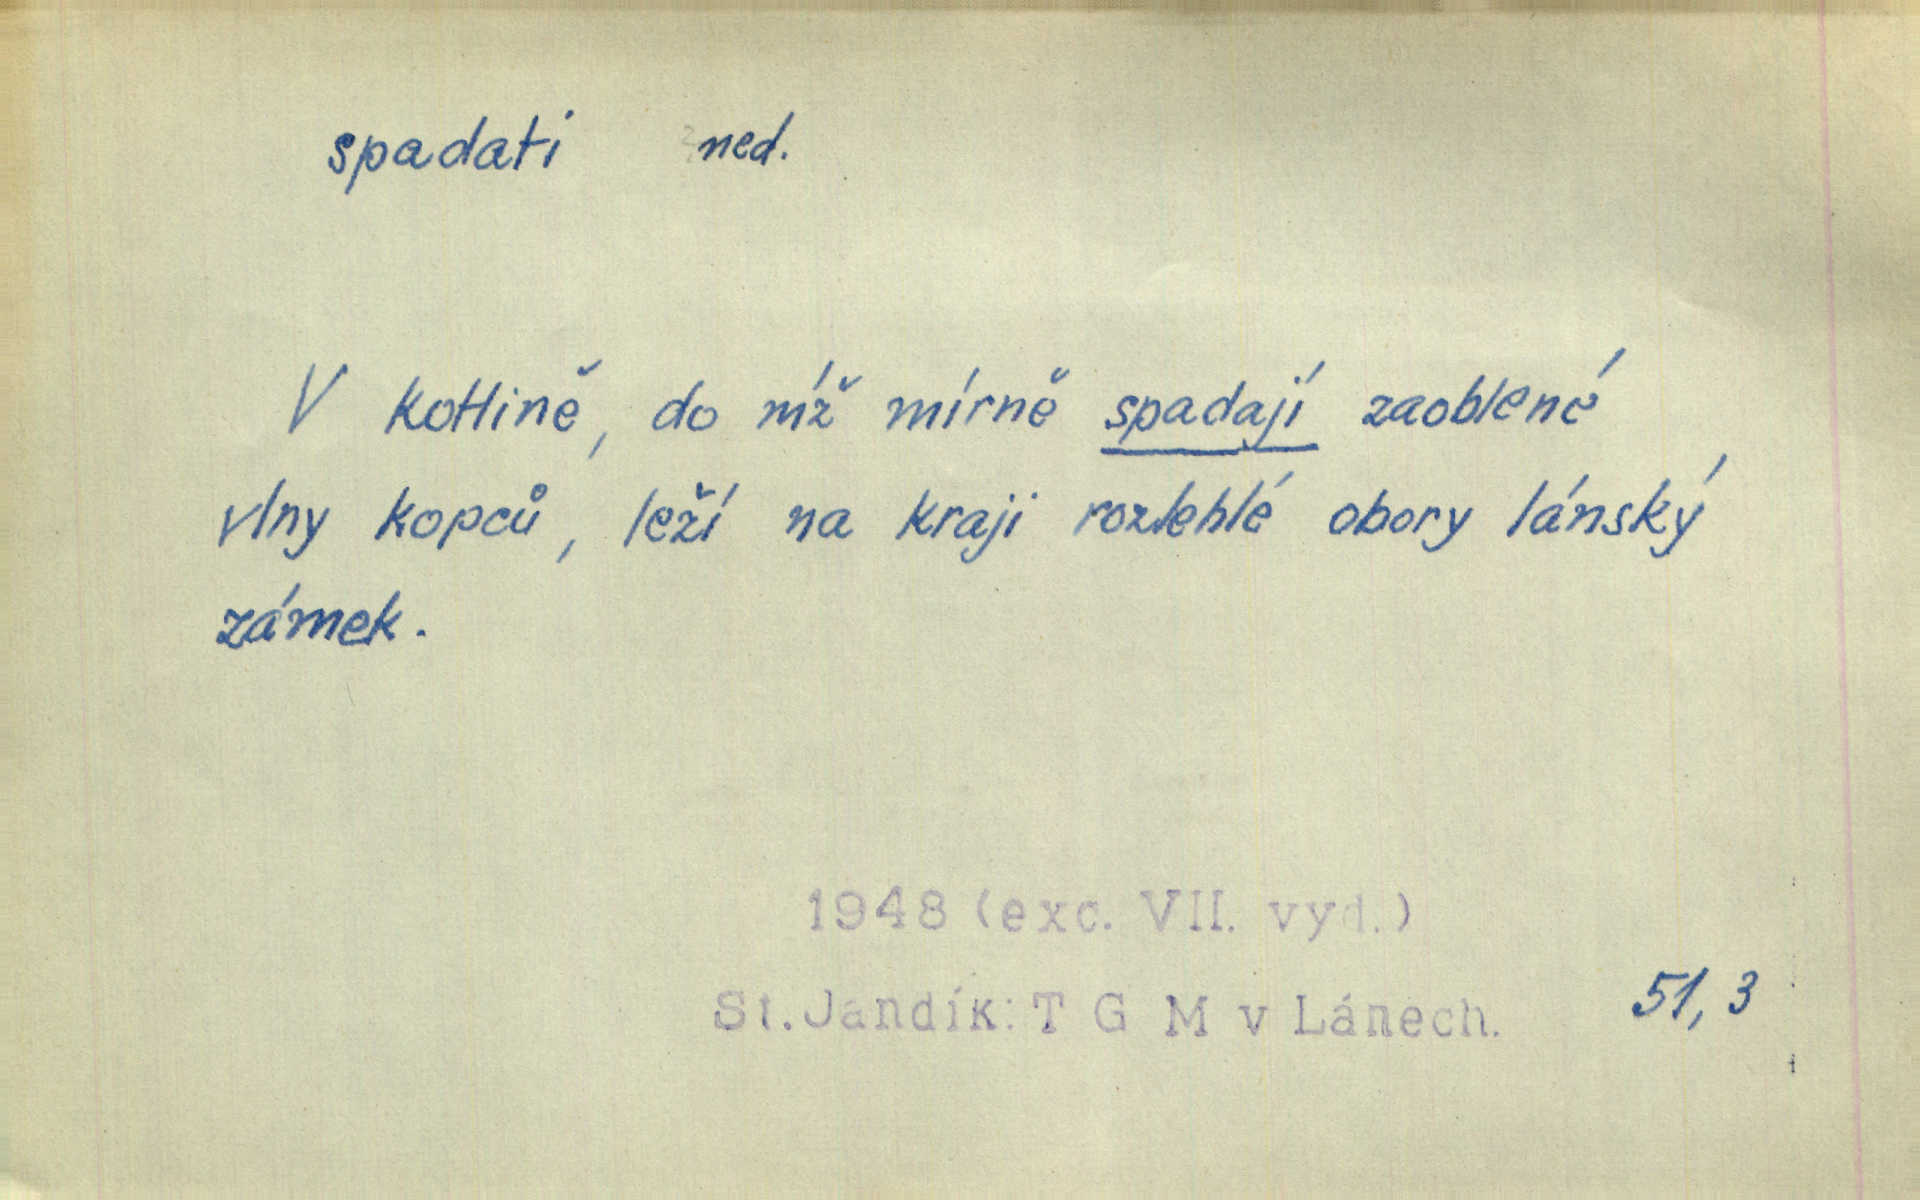 spadati ned.
V kotlině, do níž mírně spadají zaoblené
vlny kopců, leží na kraji rozlehlé obory lánský
zámek.
1948 (exc. VII. vyd.)
St. Jandík: T G M v Lánech. 51, 3